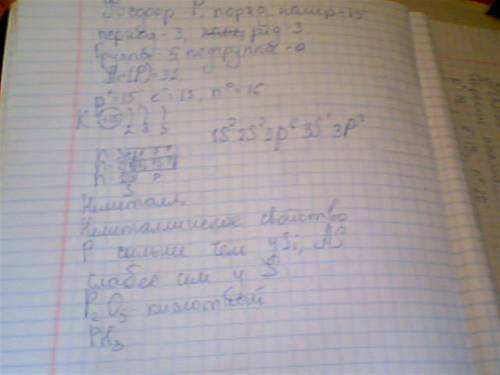 Фосфор P, поряд. номер-15
период-3, ряд-3
Группа 5, подгруппа-а
Ar(P)=31
p⁺=15, e⁻=15, n⁰=16
2 8 5
1S² 2S² 2p⁶ 3S² 3P³
S P
Неметалл.
Неметаллические свойство
P сильнее чем у Si, AS
слабее чем у S
P₂O₅ кислотный
PH₃